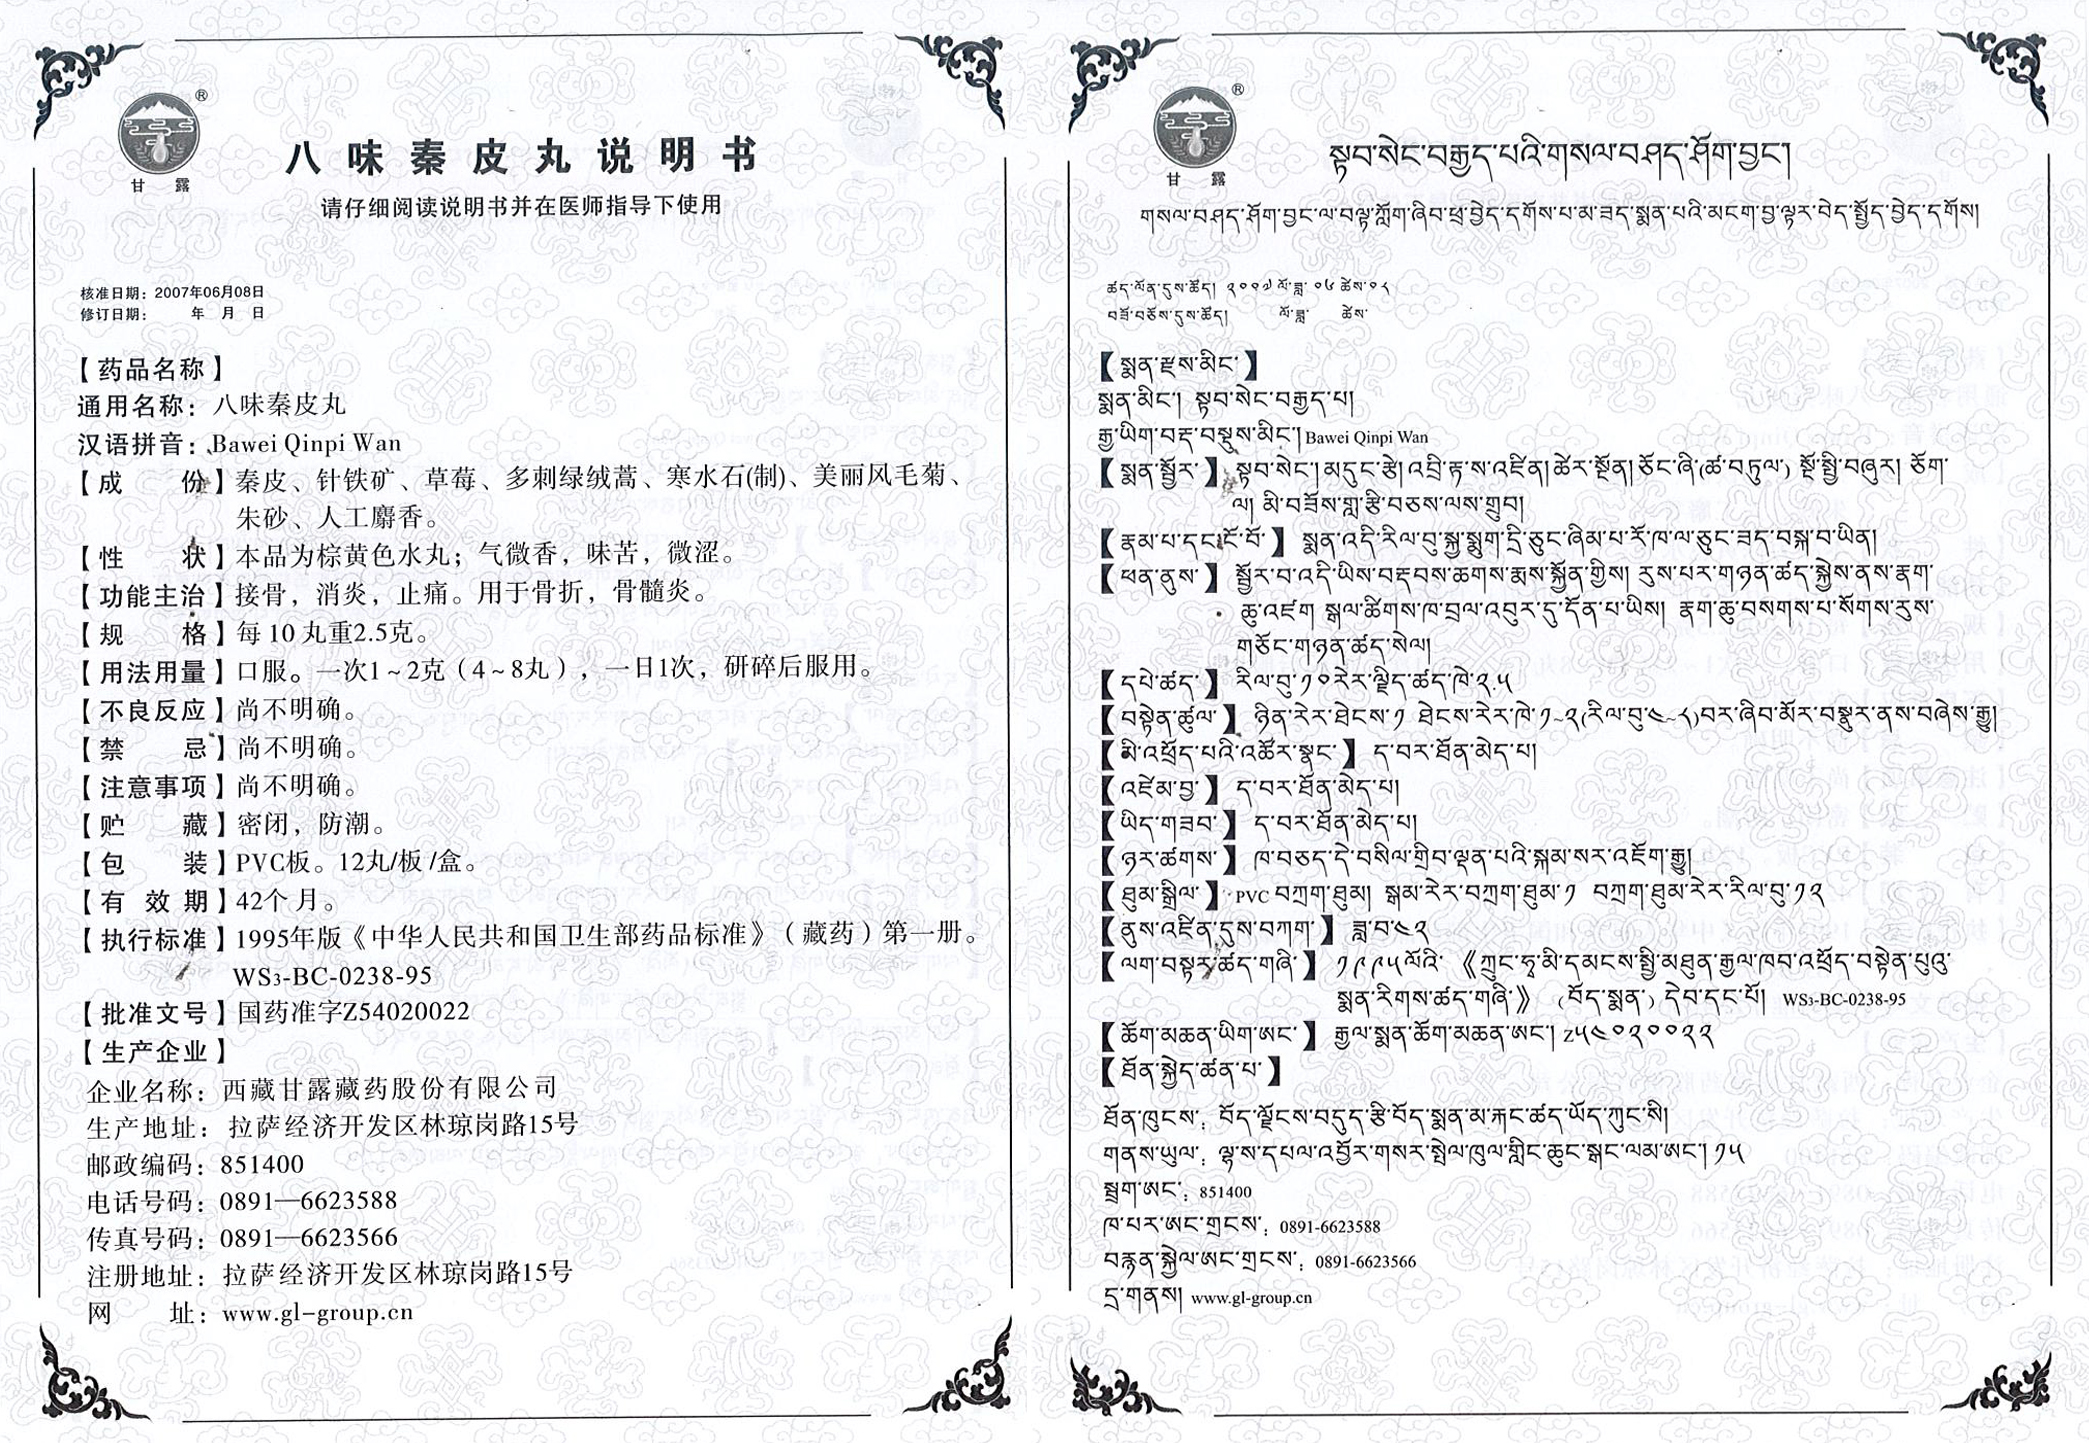 甘露
®
八味秦皮丸说明书
请仔细阅读说明书并在医师指导下使用
核准日期：2007年06月08日
修订日期：　　年　月　日
【药品名称】
通用名称：八味秦皮丸
汉语拼音：Bawei Qinpi Wan
【成　　份】秦皮、针铁矿、草莓、多刺绿绒蒿、寒水石(制)、美丽风毛菊、
朱砂、人工麝香。
【性　　状】本品为棕黄色水丸；气微香，味苦，微涩。
【功能主治】接骨，消炎，止痛。用于骨折，骨髓炎。
【规　　格】每10丸重2.5克。
【用法用量】口服。一次1~2克（4~8丸），一日1次，研碎后服用。
【不良反应】尚不明确。
【禁　　忌】尚不明确。
【注意事项】尚不明确。
【贮　　藏】密闭，防潮。
【包　　装】PVC板。12丸/板/盒。
【有 效 期】42个月。
【执行标准】1995年版《中华人民共和国卫生部药品标准》（藏药）第一册。
WS3-BC-0238-95
【批准文号】国药准字Z54020022
【生产企业】
企业名称：西藏甘露藏药股份有限公司
生产地址：拉萨经济开发区林琼岗路15号
邮政编码：851400
电话号码：0891—6623588
传真号码：0891—6623566
注册地址：拉萨经济开发区林琼岗路15号
网　　址：www.gl-group.cn
甘露
®
སྟབ་སེང་བརྒྱད་པའི་གསལ་བཤད་ཤོག་བྱང༌།
གསལ་བཤད་ཤོག་བྱང་ལ་བལྟ་ཀློག་ཞིབ་ཕྲ་བྱེད་དགོས་པ་མ་ཟད་སྨན་པའི་མངག་བྱ་ལྟར་བེད་སྤྱོད་བྱེད་དགོས།
ཚད་ལོན་དུས་ཚོད། ༢༠༠༧ ལོ་ཟླ་ ༠༦ ཚེས་༠༨
བཟོ་བཅོས་དུས་ཚོད།　　ལོ་ཟླ་　　ཚེས་
【སྨན་རྫས་མིང་】
སྨན་མིང༌། སྟབ་སེང་བརྒྱད་པ།
རྒྱ་ཡིག་བརྡ་བསྡུས་མིང༌། Bawei Qinpi Wan
【སྨན་སྦྱོར་】སྟབ་སེང༌། མདུང་རྩེ། འབྲི་རྟ་ས་འཛིན། ཚེར་སྔོན། ཅོང་ཞི་(ཚ་བཏུལ་) སྔོ་སྤྱི་བཞུར། ཅོག་
ལ། མི་བཟོས་གླ་རྩི་བཅས་ལས་གྲུབ།
【རྣམ་པ་དང་ངོ་བོ་】སྨན་འདི་རིལ་བུ་སྐྱ་སྨུག་དྲི་ཅུང་ཞིམ་པ་རོ་ཁ་ལ་ཅུང་ཟད་བསྐ་བ་ཡིན།
【ཕན་ནུས་】སྦྱོར་བ་འདི་ཡིས་བརྡབས་ཆགས་རྨས་སྐྱོན་གྱིས། རུས་པར་གཉན་ཚད་སྐྱེས་ནས་རྣག་
ཆུ་འཛག སྒལ་ཚིགས་ཁ་བྲལ་འབུར་དུ་དོན་པ་ཡིས། རྣག་ཆུ་བསགས་པ་སོགས་རུས་
གཅོང་གཉན་ཚད་སེལ།
【དཔེ་ཚད་】རིལ་བུ་༡༠རེར་ལྗིད་ཚད་ཁེ་༢.༥
【བསྟེན་ཚུལ་】ཉིན་རེར་ཐེངས་༡ ཐེངས་རེར་ཁེ་༡~༢(རིལ་བུ་༤~༨)བར་ཞིབ་མོར་བསྣུར་ནས་བཞེས་རྒྱུ།
【མི་འཕྲོད་པའི་འཚོར་སྣང་】ད་བར་ཐོན་མེད་པ།
【འཛེམ་བྱ་】ད་བར་ཐོན་མེད་པ།
【ཡིད་གཟབ་】ད་བར་ཐོན་མེད་པ།
【ཉར་ཚགས་】ཁ་བཅད་དེ་བསིལ་གྲིབ་ལྡན་པའི་སྐམ་སར་འཇོག་རྒྱུ།
【ཐུམ་སྒྲིལ་】PVC བཀྲག་ཐུམ། སྒམ་རེར་བཀྲག་ཐུམ་༡ བཀྲག་ཐུམ་རེར་རིལ་བུ་༡༢
【ནུས་འཛིན་དུས་བཀག་】ཟླ་བ་༤༢
【ལག་བསྟར་ཚད་གཞི་】༡༩༩༥ལོའི་《ཀྲུང་ཧྭ་མི་དམངས་སྤྱི་མཐུན་རྒྱལ་ཁབ་འཕྲོད་བསྟེན་པུའུ་
སྨན་རིགས་ཚད་གཞི་》(བོད་སྨན་) དེབ་དང་པོ། WS3-BC-0238-95
【ཆོག་མཆན་ཡིག་ཨང་】རྒྱལ་སྨན་ཆོག་མཆན་ཨང༌། z༥༤༠༢༠༠༢༢
【ཐོན་སྐྱེད་ཚན་པ་】
ཐོན་ཁུངས་：བོད་ལྗོངས་བདུད་རྩི་བོད་སྨན་མ་རྐང་ཚད་ཡོད་ཀུང་སི།
གནས་ཡུལ་：ལྷ་ས་དཔལ་འབྱོར་གསར་སྤེལ་ཁུལ་གླིང་ཆུང་སྒང་ལམ་ཨང༌།༡༥
སྦྲག་ཨང་：851400
ཁ་པར་ཨང་གྲངས་：0891-6623588
བརྙན་སྐྱེལ་ཨང་གྲངས་：0891-6623566
དྲ་གནས། www.gl-group.cn